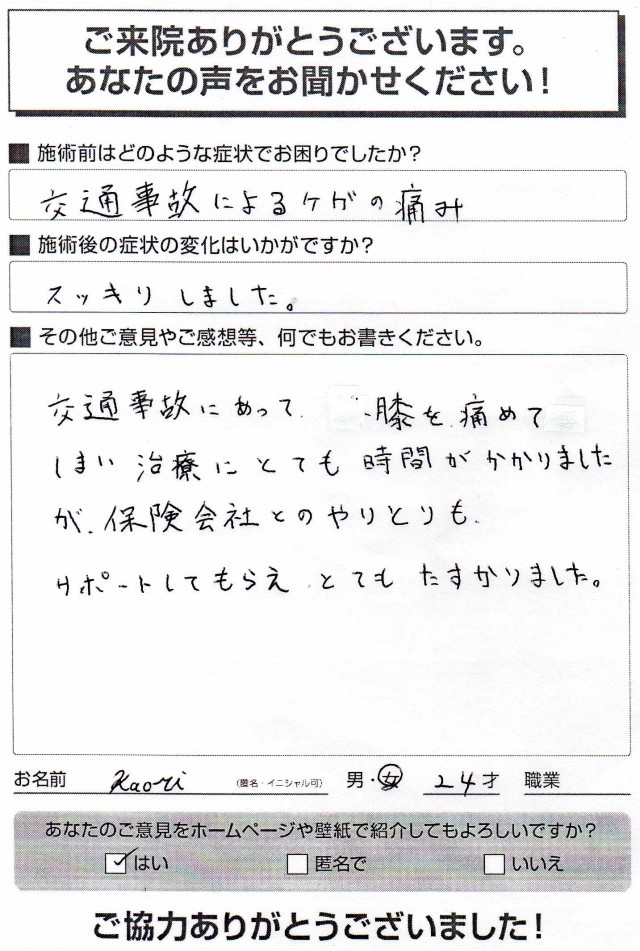 ご来院ありがとうございます。
あなたの声をお聞かせください!
■ 施術前はどのような症状でお困りでしたか?
交通事故によるケガの痛み
■ 施術後の症状の変化はいかがですか?
スッキリしました。
■ その他ご意見やご感想等、何でもお書きください。
交通事故にあって、膝を痛めて
しまい治療にとても時間がかかりました
が、保険会社とのやりとりも、
サポートしてもらえとてもたすかりました。
お名前 Kaori (匿名・イニシャル可) 男・女 24才 職業
あなたのご意見をホームページや壁紙で紹介してもよろしいですか?
はい 匿名で いいえ
ご協力ありがとうございました!